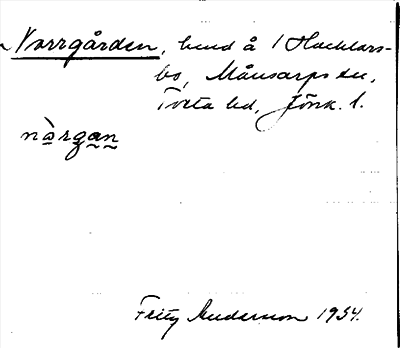 Norrgården, hmd å 1 Hacklars-
bo, Månsarps sn,
Tveta hd, Jönk. l.
nàrgan
Fritz Anderson 1934.